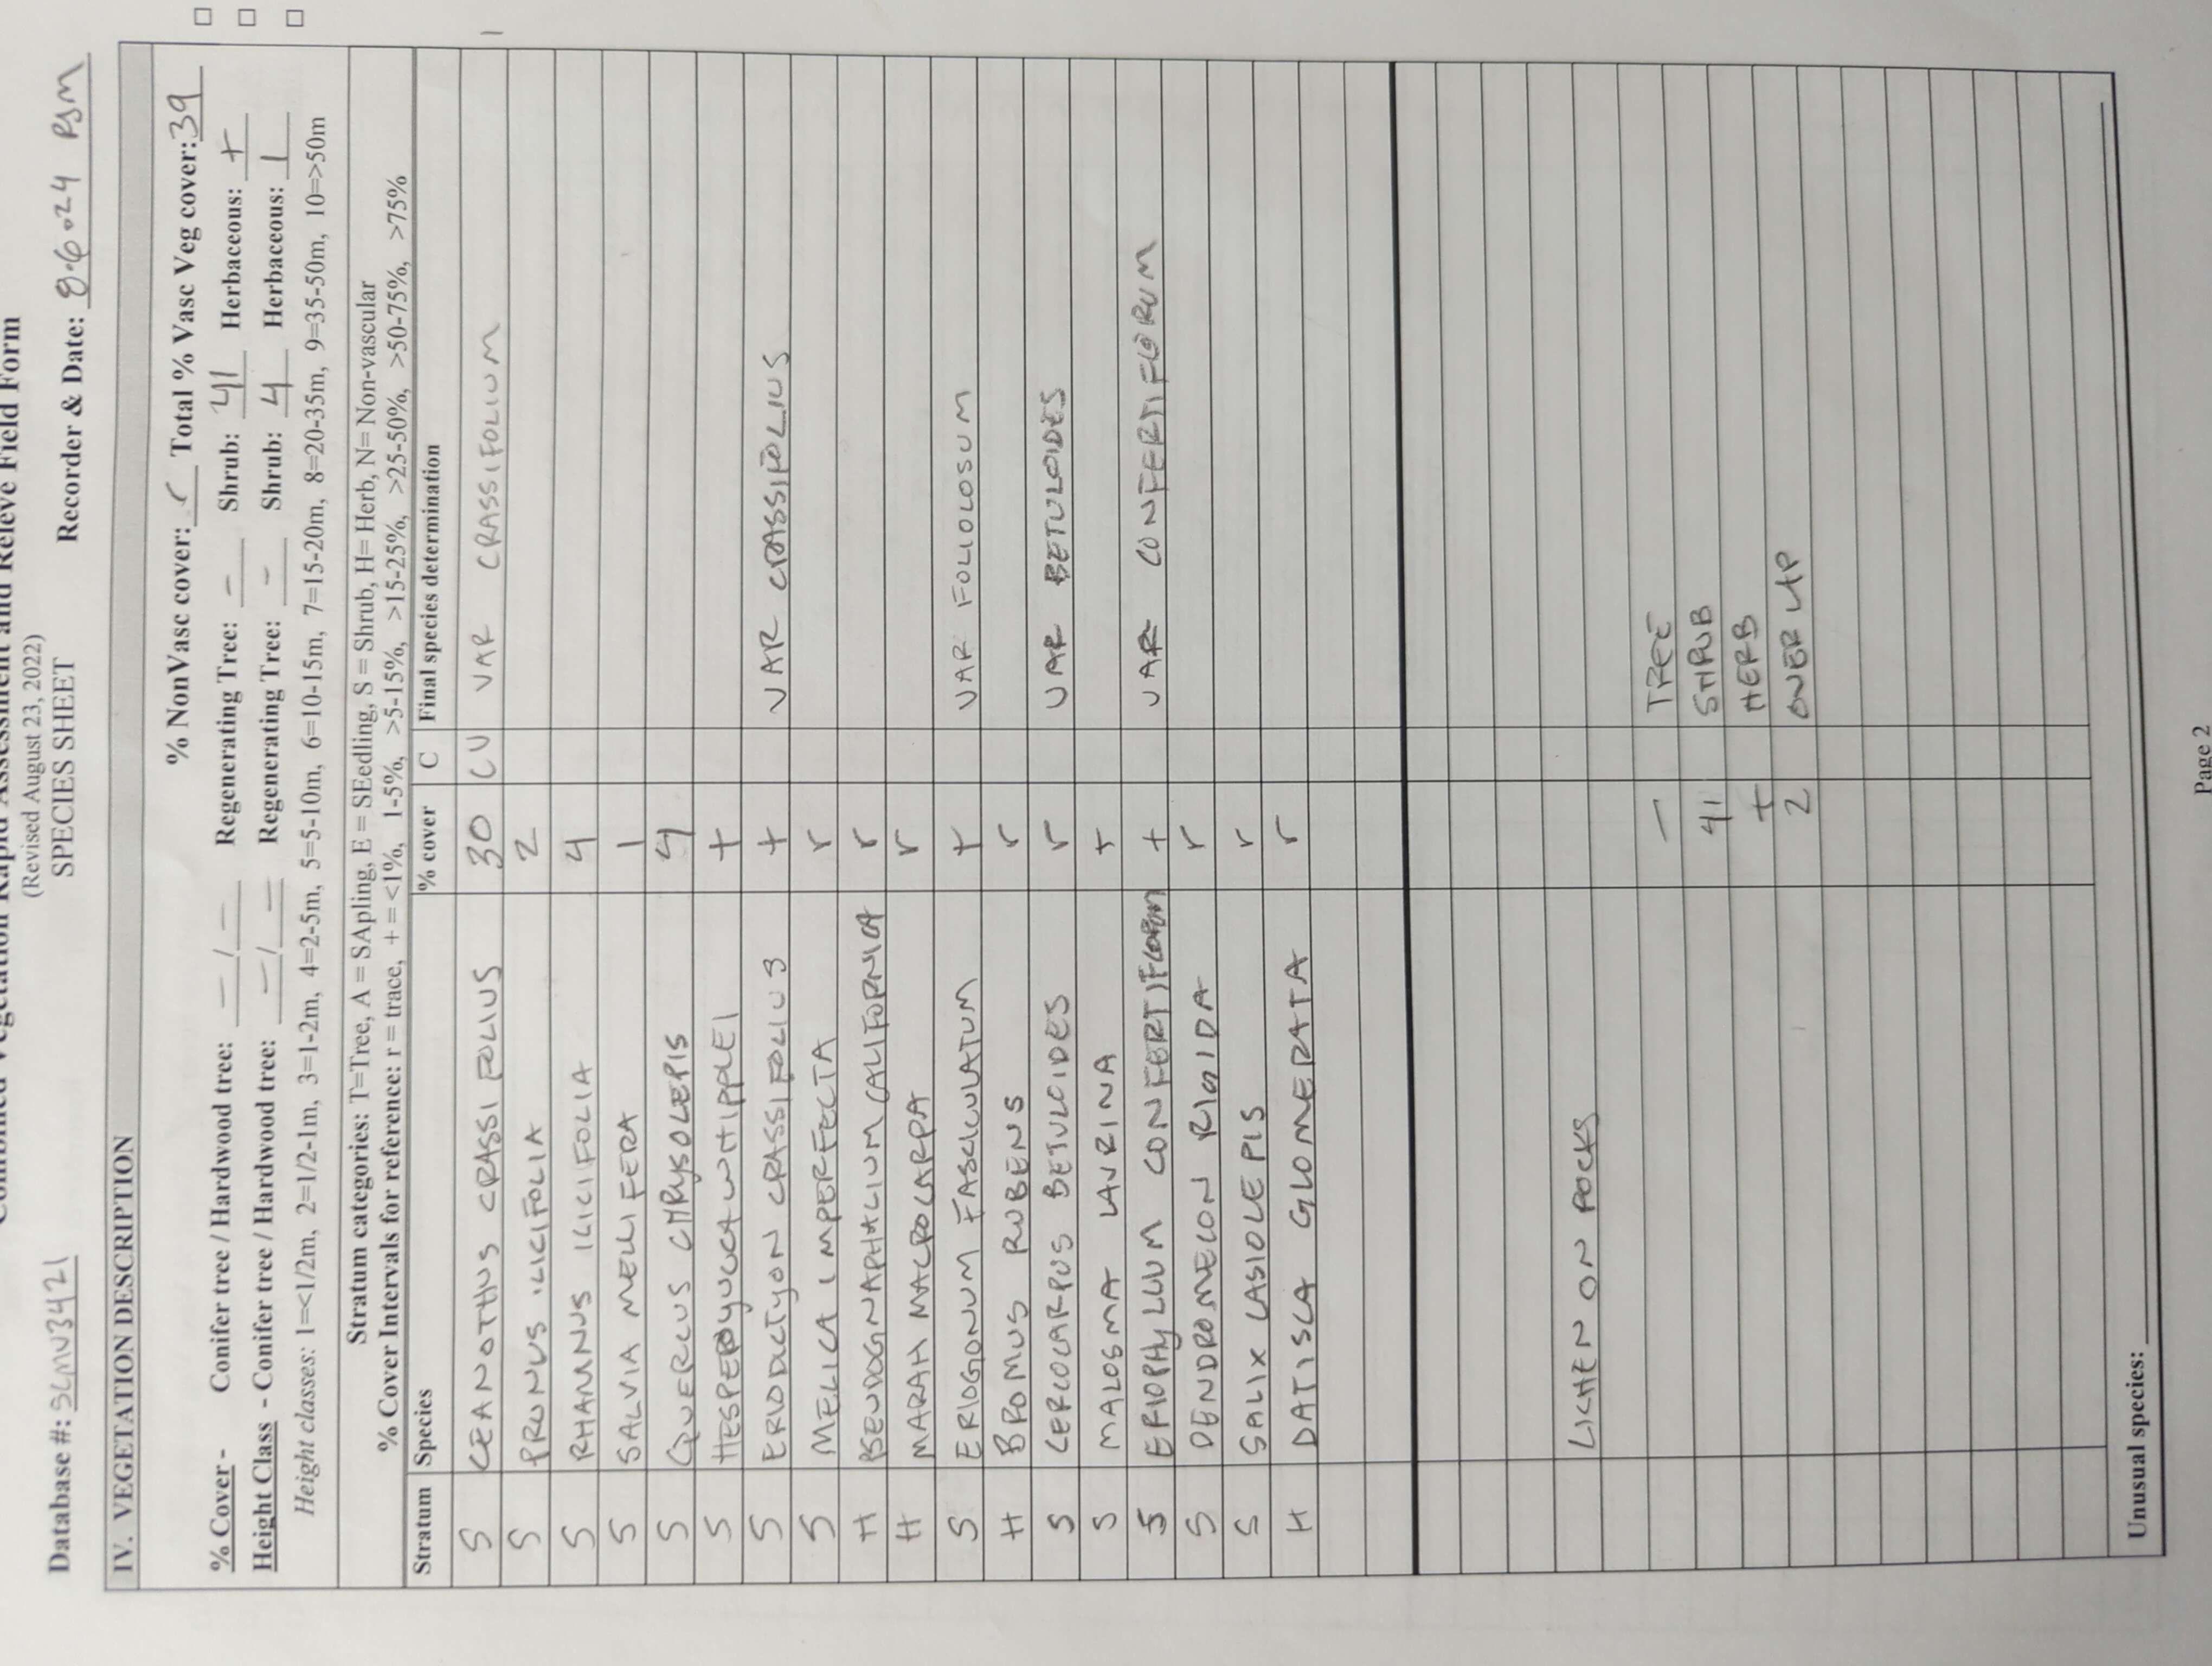 Combined Vegetation Rapid Assessment and Relevé Field Form
(Revised August 23, 2022)
SPECIES SHEET
Database #: SGMV3421 Recorder & Date: 8.6.24 PSM
IV. VEGETATION DESCRIPTION
% NonVasc cover: r Total % Vasc Veg cover: 39
% Cover - Conifer tree / Hardwood tree: – / – Regenerating Tree: – Shrub: 41 Herbaceous: +
Height Class - Conifer tree / Hardwood tree: – / – Regenerating Tree: – Shrub: 4 Herbaceous: 1
Height classes: 1=<1/2m, 2=1/2-1m, 3=1-2m, 4=2-5m, 5=5-10m, 6=10-15m, 7=15-20m, 8=20-35m, 9=35-50m, 10=>50m
Stratum categories: T=Tree, A = SApling, E = SEedling, S = Shrub, H= Herb, N= Non-vascular
% Cover Intervals for reference: r = trace, + = <1%, 1-5%, >5-15%, >15-25%, >25-50%, >50-75%, >75%
Stratum Species % cover C Final species determination
S CEANOTHUS CRASSIFOLIUS 30 CU VAR CRASSIFOLIUM
S PRUNUS ILICIFOLIA 2
S RHAMNUS ILICIFOLIA 4
S SALVIA MELLIFERA 1
S QUERCUS CHRYSOLEPIS 4
S HESPEROYUCCA WHIPPLEI +
S ERIODICTYON CRASSIFOLIUS + VAR CRASSIFOLIUS
S MELICA IMPERFECTA r
H PSEUDOGNAPHALIUM CALIFORNICA r
H MARAH MACROCARPA r
S ERIOGONUM FASCICULATUM + VAR FOLIOLOSUM
H BROMUS RUBENS r
S CERCOCARPUS BETULOIDES r VAR BETULOIDES
S MALOSMA LAURINA +
S ERIOPHYLLUM CONFERTIFLORUM + VAR CONFERTIFLORUM
S DENDROMECON RIGIDA r
S SALIX LASIOLEPIS r
H DATISCA GLOMERATA r
LICHEN ON ROCKS
– TREE
41 SHRUB
+ HERB
2 OVERLAP
Unusual species:
Page 2